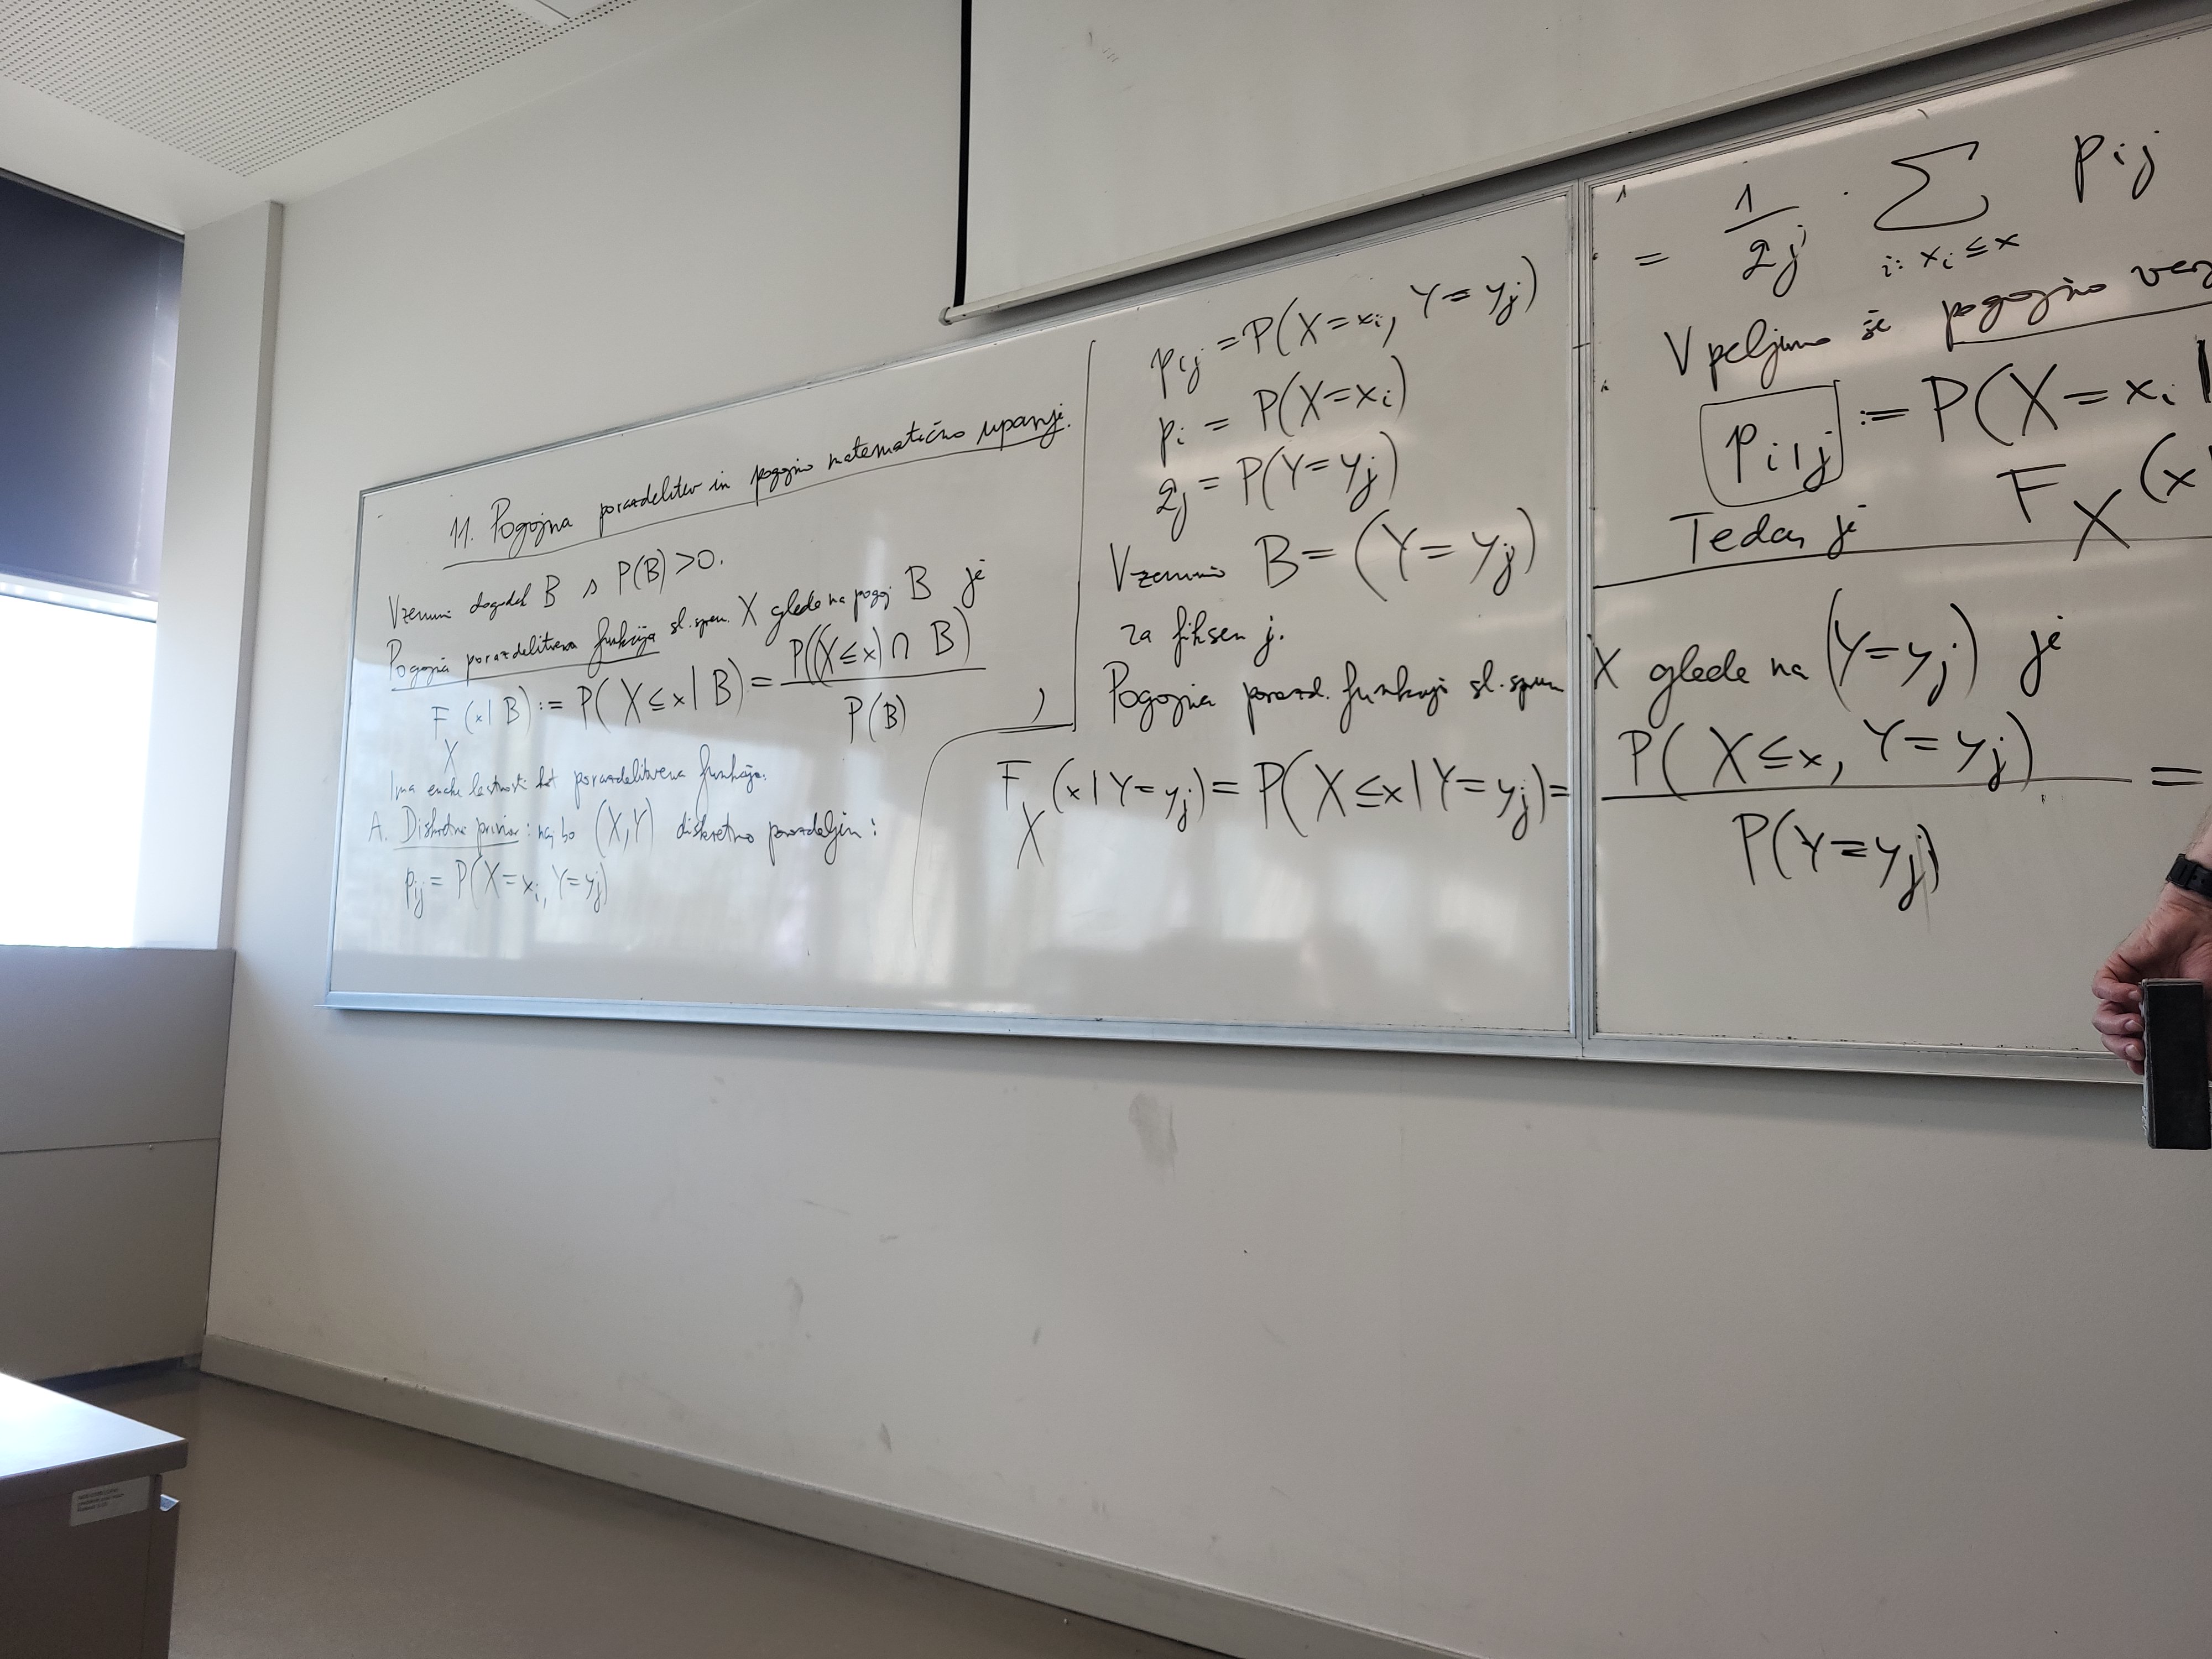 11. Pogojna porazdelitev in pogojno matematično upanje.
Vzemimo dogodek B s P(B) > 0.
Pogojna porazdelitvena funkcija sl. sprem. X glede na pogoj B je
F_X (x | B) := P(X ≤ x | B) = P((X ≤ x) ∩ B) / P(B) ,
Ima enake lastnosti kot porazdelitvena funkcija.
A. Diskretni primer: naj bo (X,Y) diskretno porazdeljen:
p_ij = P(X = x_i, Y = y_j)
p_ij = P(X = x_i, Y = y_j)
p_i = P(X = x_i)
q_j = P(Y = y_j)
Vzemimo B = (Y = y_j)
za fiksen j.
Pogojna porazd. funkcija sl. sprem X glede na (Y = y_j) je
F_X (x | Y = y_j) = P(X ≤ x | Y = y_j) = P(X ≤ x, Y = y_j) / P(Y = y_j) =
= 1 / q_j · Σ_{i: x_i ≤ x} p_ij
Vpeljimo še pogojno
p_i|j := P(X = x_i |
Tedaj je F_X (x